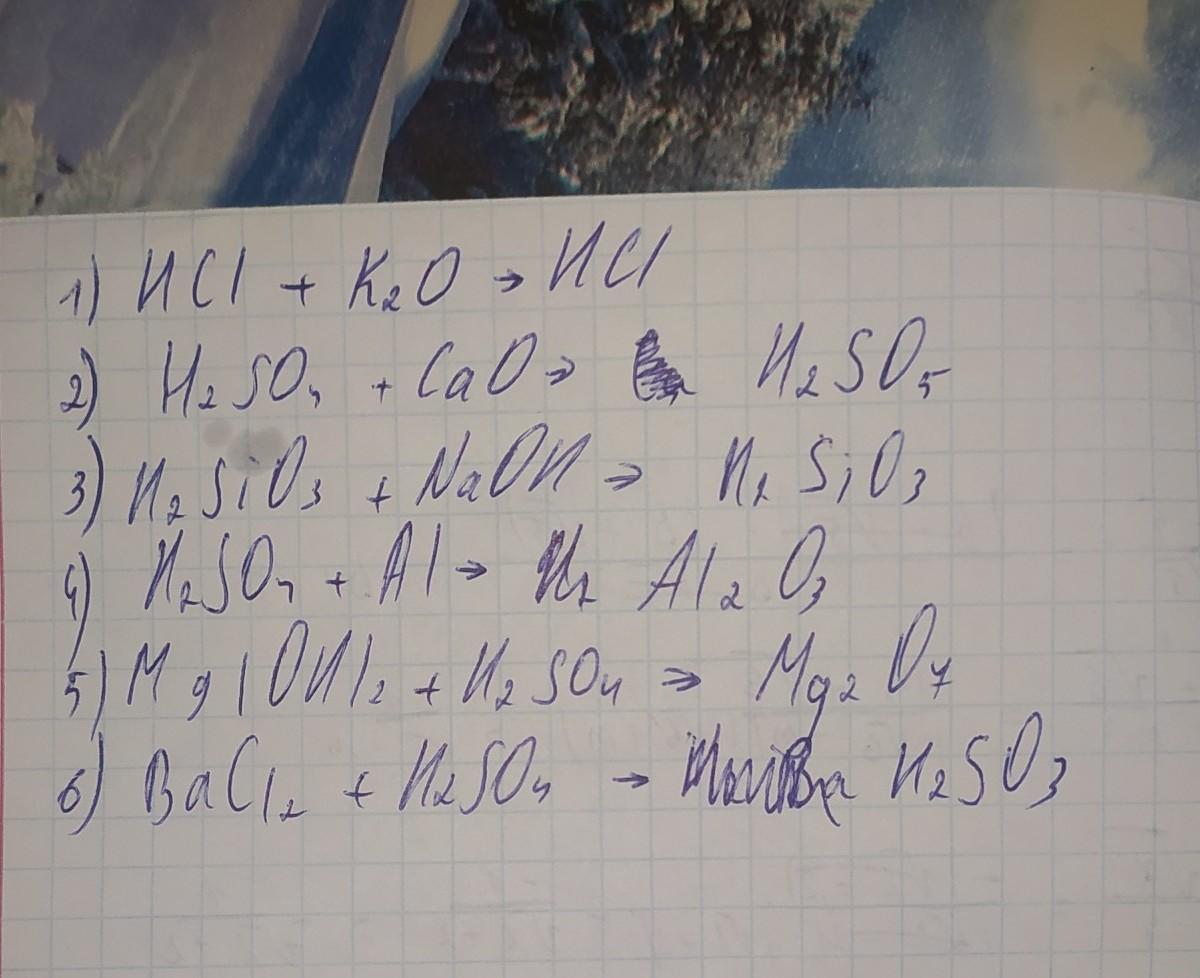 1) HCl + K₂O → HCl
2) H₂SO₄ + CaO → H₂SO₅
3) H₂SiO₃ + NaOH → H₂SiO₃
4) H₂SO₄ + Al → Al₂O₃
5) Mg(OH)₂ + H₂SO₄ → Mg₂O₇
6) BaCl₂ + H₂SO₄ → H₂SO₃